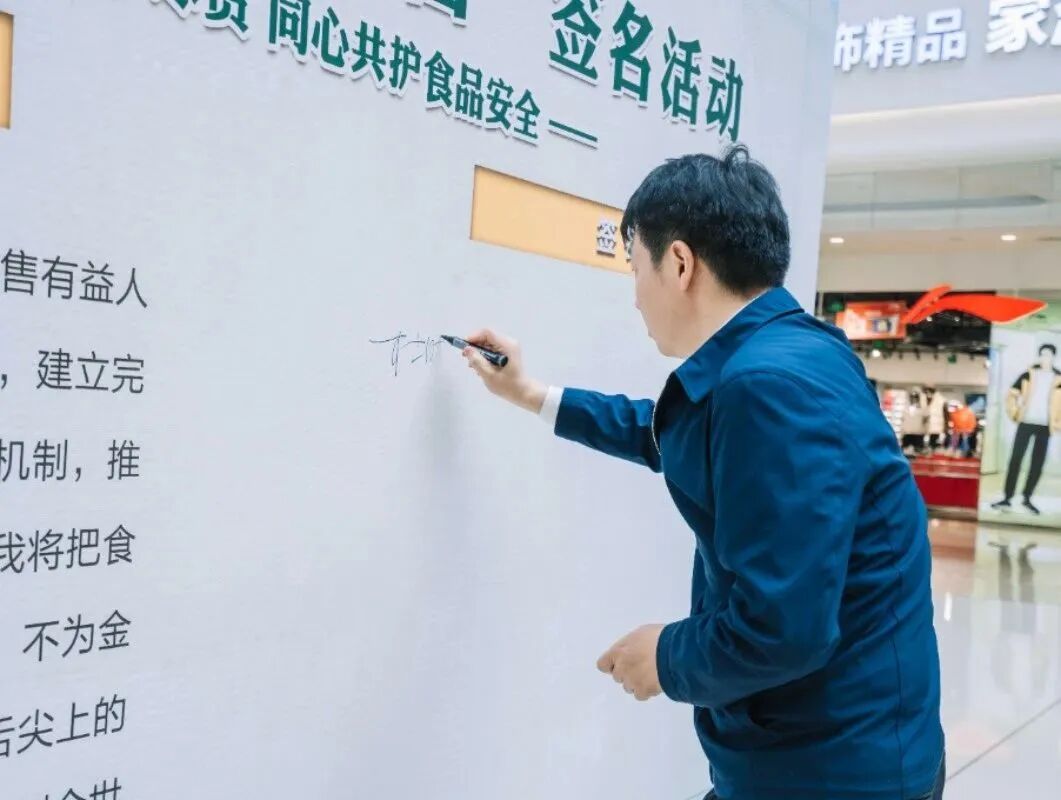 签名活动
同心共护食品安全 ——
饰精品
家
签
售有益人
，建立完
机制，推
我将把食
不为金
舌尖上的